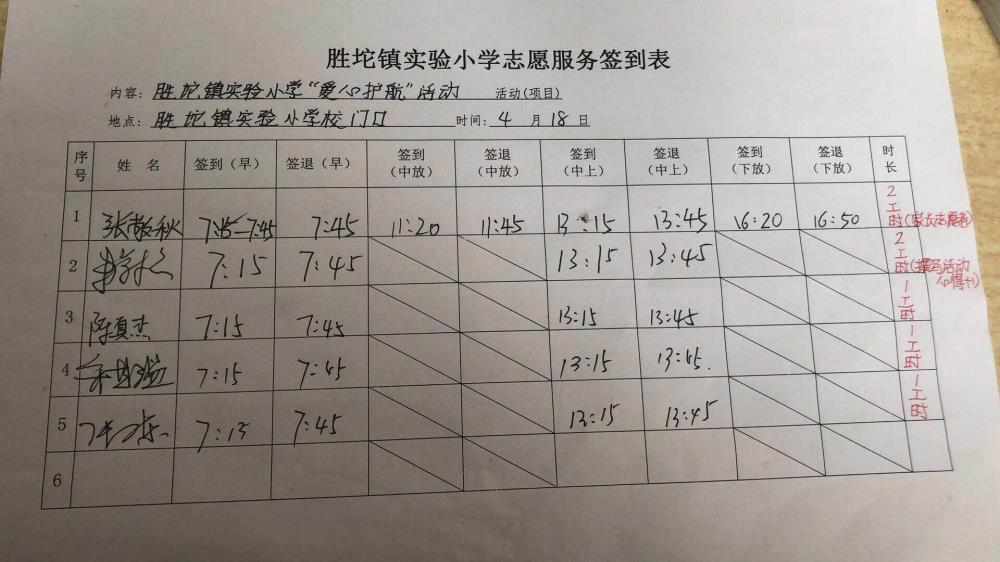 胜坨镇实验小学志愿服务签到表
内容: 胜坨镇实验小学“爱心护航”活动 活动(项目)
地点: 胜坨镇实验小学校门口 时间: 4 月 18 日
序号 姓 名 签到(早) 签退(早) 签到(中放) 签退(中放) 签到(中上) 签退(中上) 签到(下放) 签退(下放) 时长
1 张敬秋 7:45 11:20 11:45 13:15 13:45 16:20 16:50 2工时(家长志愿者)
2 7:15 7:45 13:15 13:45 2工时(撰写活动心得+1)
3 陈真杰 7:15 7:45 13:15 13:45 1工时
4 7:15 7:45 13:15 13:45. 1工时
5 7:15 7:45 13:15 13:45 1工时
6